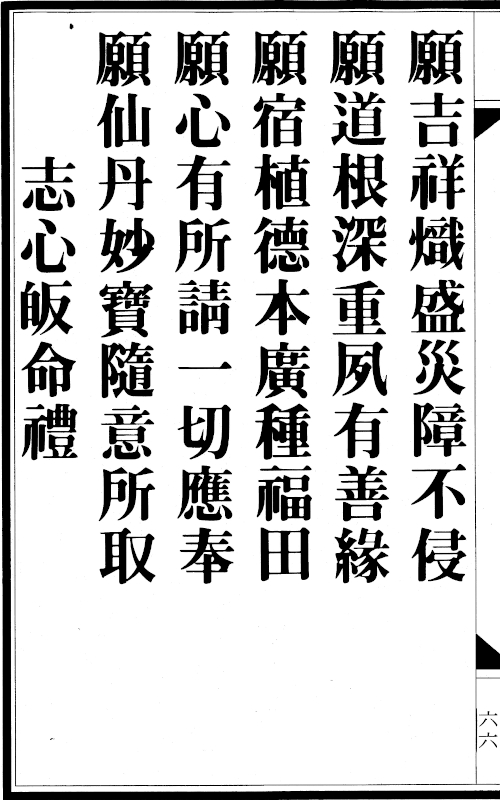 願吉祥熾盛災障不侵
願道根深重夙有善緣
願宿植德本廣種福田
願心有所請一切應奉
願仙丹妙寶隨意所取
志心皈命禮
六六